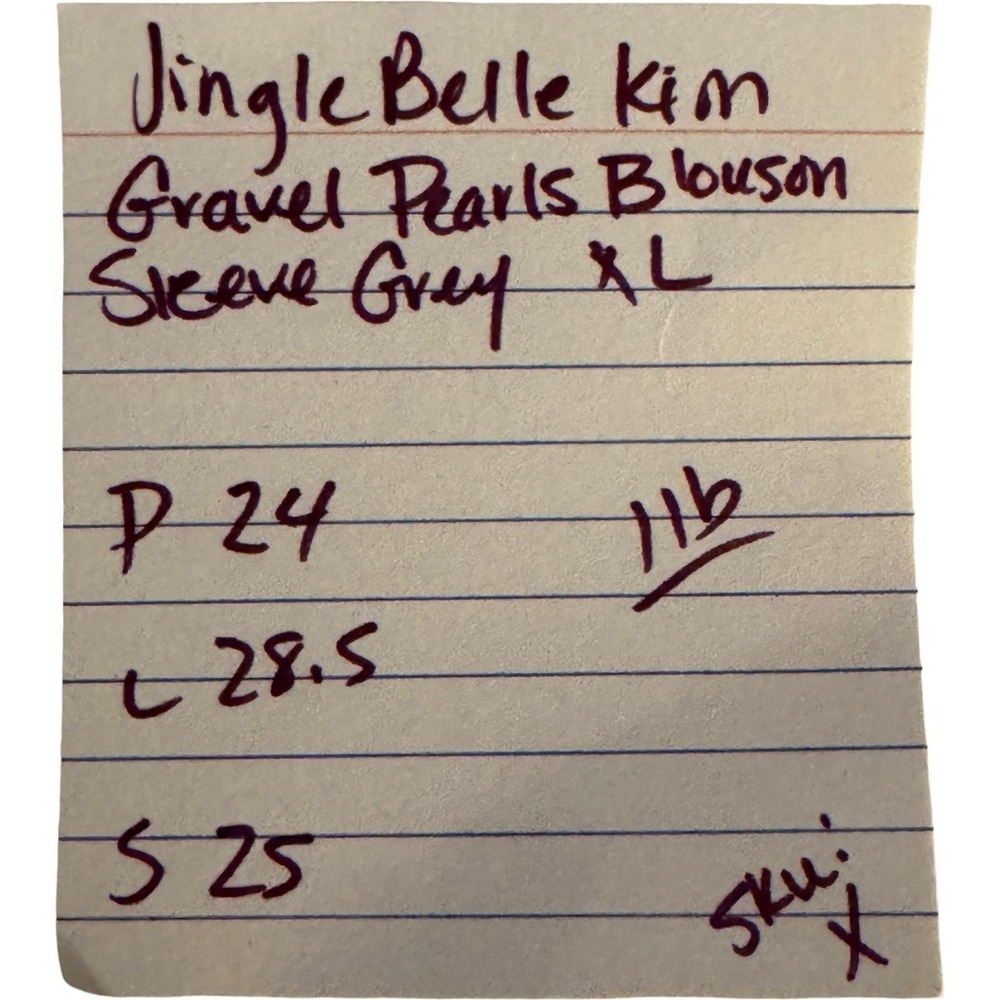 Jingle Belle Kim
Gravel Pearls Blouson
Sleeve Grey XL
P 24
1 lb
L 28.5
S 25
SKU:
X